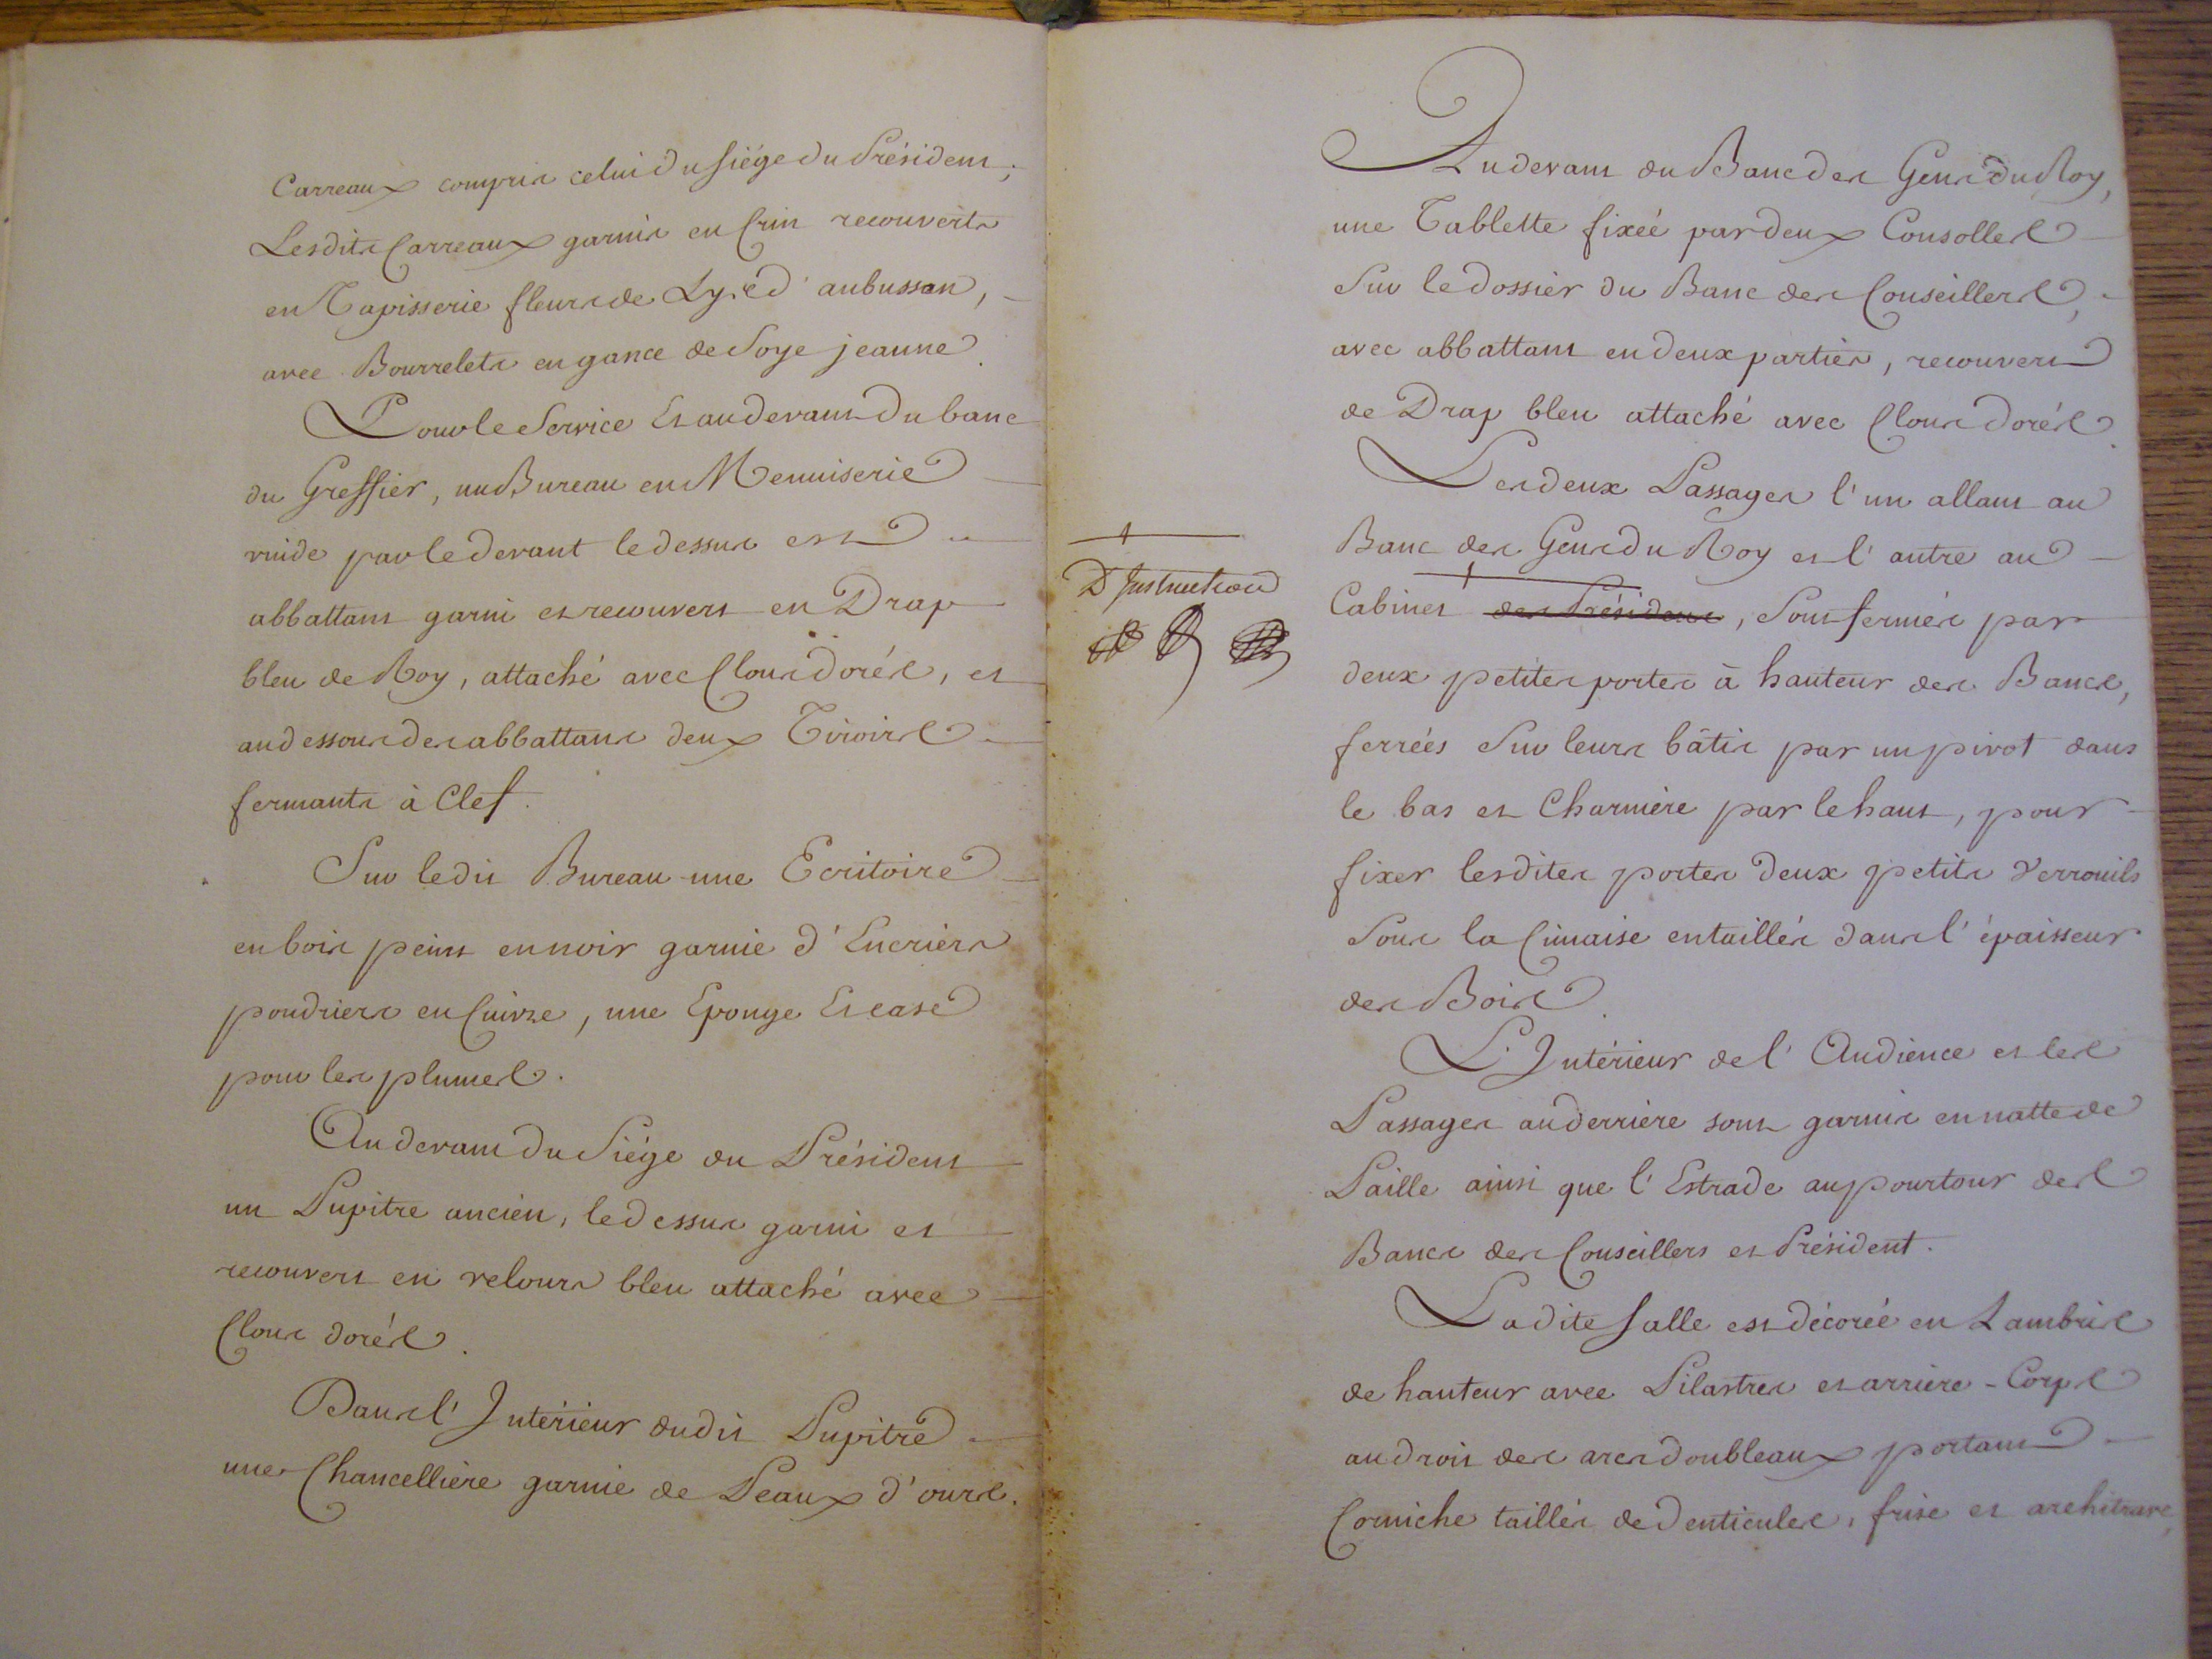 Carreaux compris celui du siége du Président ;
Lesdits Carreaux garnis en Crin recouverts
en Tapisserie fleurs de Lys d'aubusson,
avec Bourrelets en gance de Soye jeaune.
Pour le Service Et au devant du banc
du Greffier, un Bureau en Menuiserie
vuide par le devant le dessus est
abbattant garni et recouvert en Drap
bleu de Roy, attaché avec Clous dorés, et
au dessous des abbattans deux Tiroirs
fermants à Clef.
Sur ledit Bureau une Ecritoire
en bois peint en noir garnie d'Encriers
poudriers en Cuivre, une Eponge Et case
pour les plumes.
Au devant du Siége du Président
un Pupitre ancien, le dessus garni et
recouvert en velours bleu attaché avec
Clous dorés.
Dans l'Intérieur dudit Pupitre
une Chancellière garnie de Peaux d'ours.
Au devant du Banc des Gens du Roy,
une Tablette fixeé par deux Consolles
Sur le dossier du Banc des Conseillers,
avec abbattant en deux parties, recouvert
de Drap bleu attaché avec Clous dorés.
Les deux Passages l'un allant au
Banc des Gens du Roy et l'autre au
D'Instruction
Cabinet des Présidens, Sont fermés par
deux petites portes à hauteur des Bancs,
ferrées Sur leurs bâtis par un pivot dans
le bas et Charnière par le haut, pour
fixer lesdites portes deux petits Verrouils
Sous la Cimaise entaillés dans l'épaisseur
des Bois.
L'Intérieur de l'Audience et les
Passages au derrière sont garnis en natte de
Paille ainsi que l'Estrade au pourtour des
Bancs des Conseillers et Président.
Ladite Salle est décoreé en Lambris
de hauteur avec Pilastres et arrière-Corps
au droit des arcs doubleaux portant
Corniche taillés de Denticules, frise et architrave,